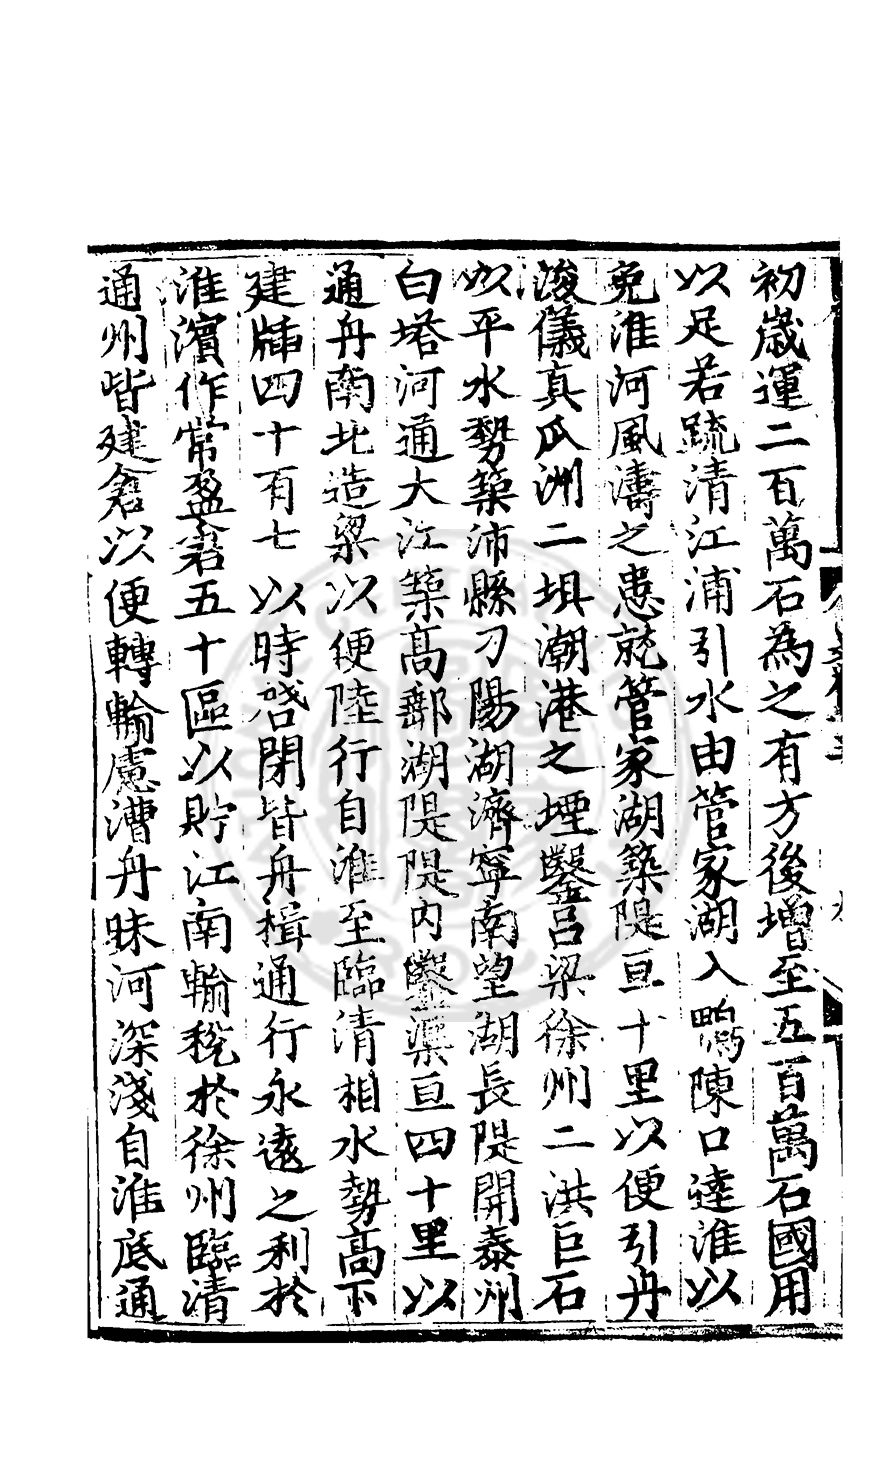 初歲運二百萬石為之有方後增至五百萬石國用
以足若䟽清江浦引水由管家湖入鴨陳口達淮以
免淮河風濤之患就管家湖築隄亘十里以便引舟
浚儀真瓜洲二埧潮港之堙鑿呂梁徐州二洪巨石
以平水勢築沛縣刁陽湖濟寧南望湖長隄開泰州
白塔河通大江築高郵湖隄隄內鑿渠亘四十里以
通舟南北造梁以便陸行自淮至臨清相水勢高下
建牐四十有七以時啓閉皆舟楫通行永遠之利於
淮濱作常盈倉五十區以貯江南輸稅於徐州臨清
通州皆建倉以便轉輸慮漕舟昧河深淺自淮底通